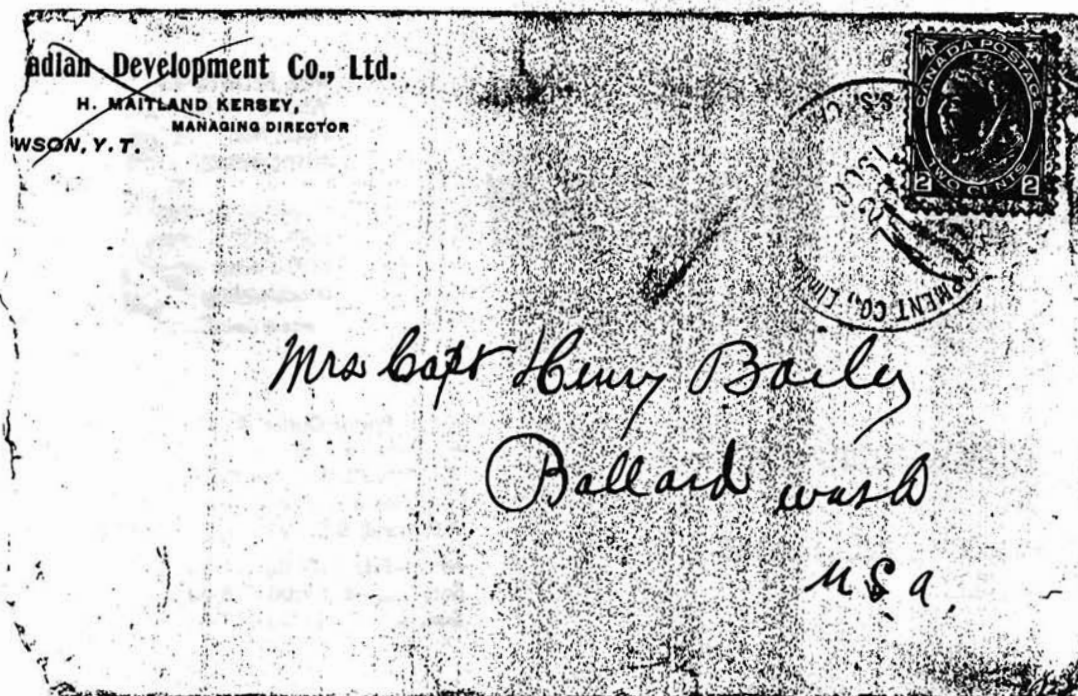 adian Development Co., Ltd.
H. MAITLAND KERSEY,
MANAGING DIRECTOR
WSON, Y. T.
CANADA POSTAGE
2 TWO CENTS 2
S.S.
PMENT CO., Lim
Mrs Capt Henry Bailey
Ballard wash
U S a.